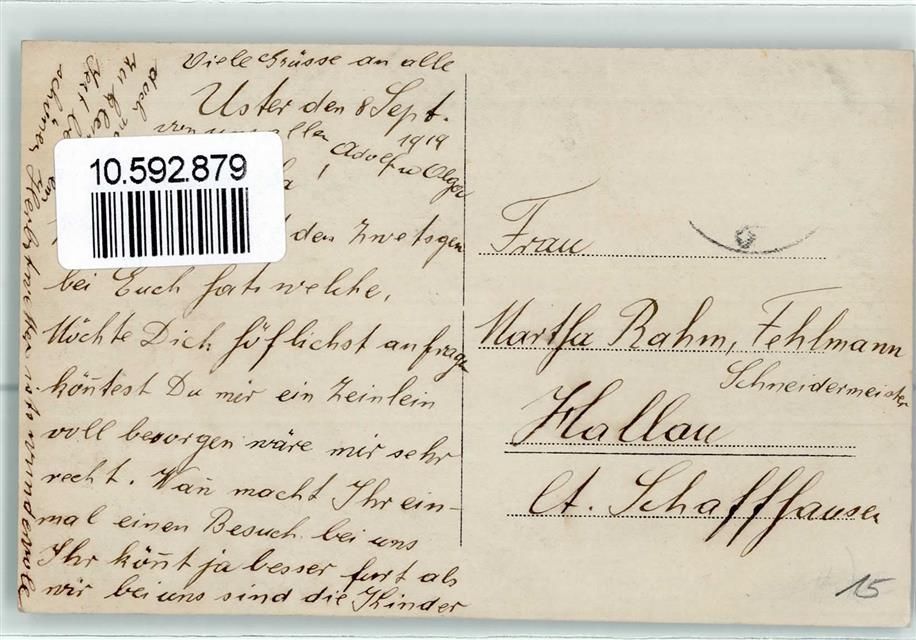 Viele Grüsse an alle
Uster den 8 Sept.
1919
von
Adolf u Olga
10.592.879
!
den Zwetsgen
bei Euch hats welche,
Möchte Dich höflichst anfragen
kön̄test Du mir ein Zeinlein
voll besorgen wäre mir sehr
recht. Wan̄ macht Ihr ein-
mal einen Besuch bei uns
Ihr kön̄t ja besser fort als
wir bei uns sind die Kinder
doch
zu klein
schönes Herbstwetter ists wundervoll
Frau
Martha Rahm, Fehlmann
Schneidermeister
Hallau
Ct. Schaffhausen
15